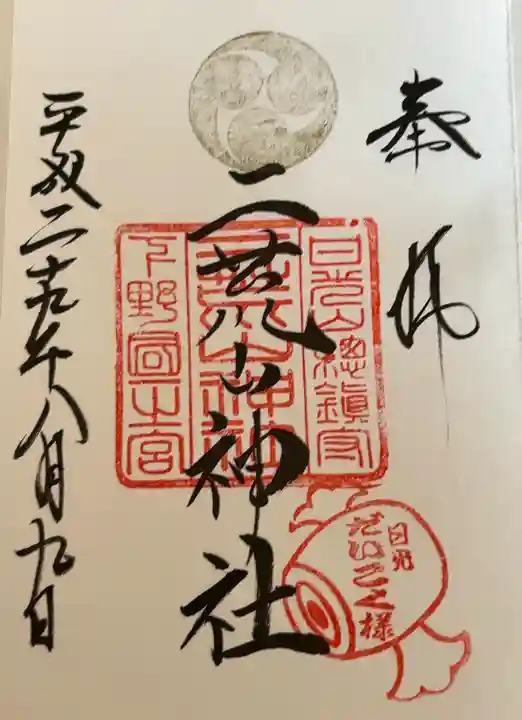 奉拝
日光山總鎮守
二荒山神社
二荒山神社
下野国一之宮
日光
だいこく様
平成二十九年八月九日